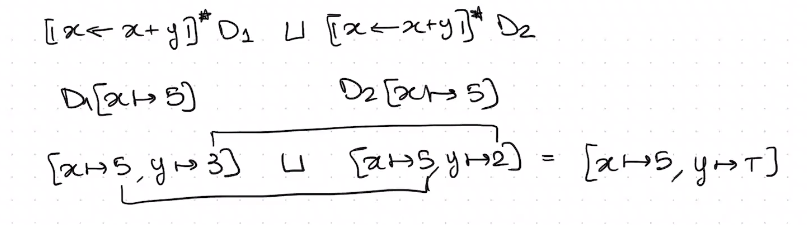 ⟦x ← x+y⟧* D₁ ⊔ ⟦x ← x+y⟧* D₂
D₁[x ↦ 5] D₂[x ↦ 5]
[x ↦ 5, y ↦ 3] ⊔ [x ↦ 5, y ↦ 2] = [x ↦ 5, y ↦ ⊤]